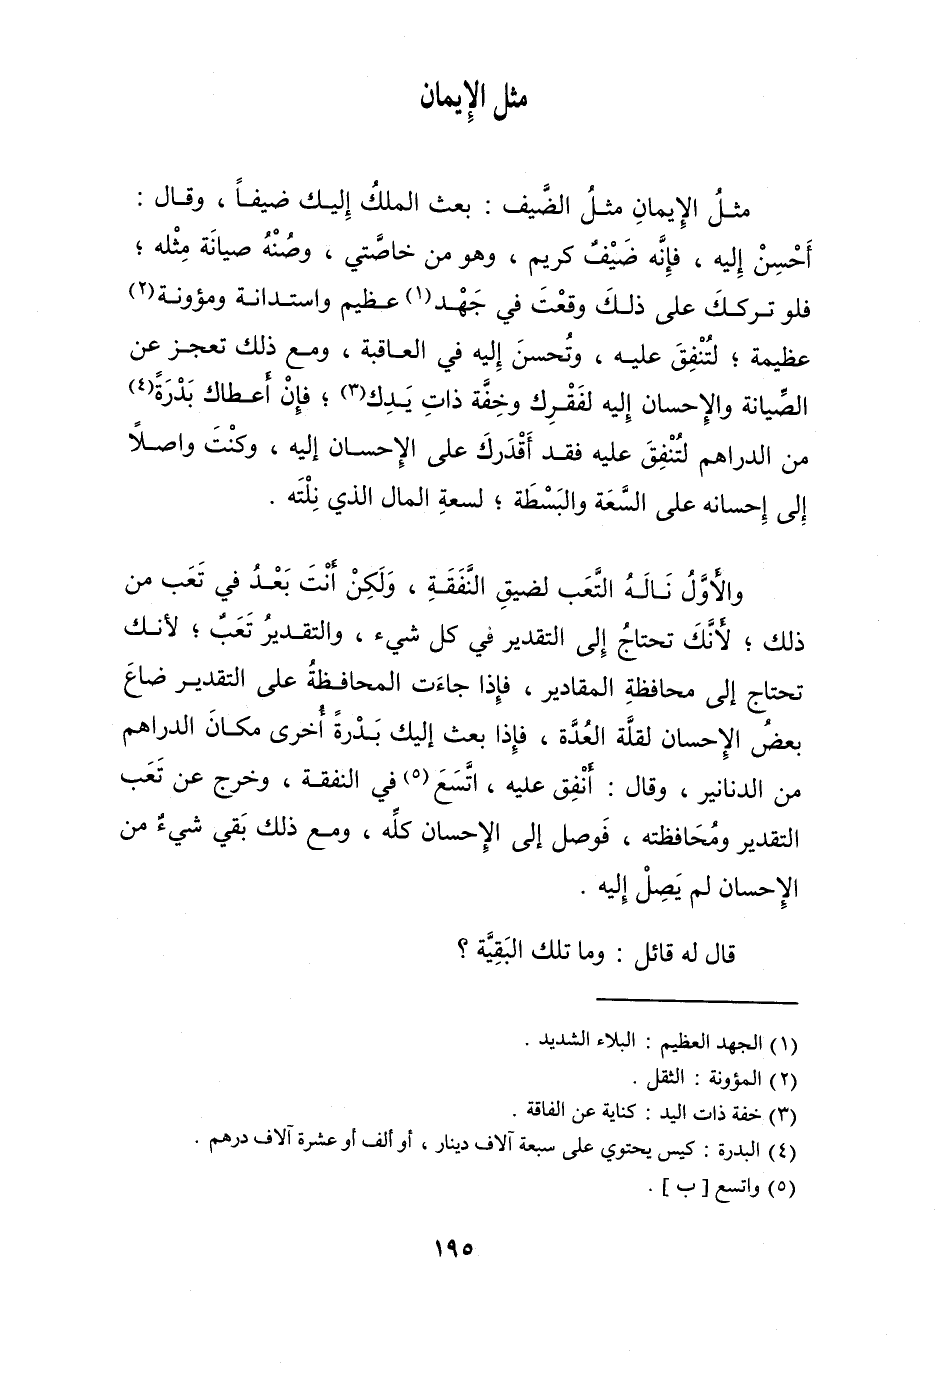 مثل الإِيمان
مثـلُ الإِيمانِ مثـلُ الضَّيف : بعث الملكُ إِليـك ضيفـاً ، وقـال :
أَحْسِنْ إِليه ، فإِنَّه ضَيْفٌ كريم ، وهو من خاصَّتي ، وصُنْهُ صيانَة مِثْله ؛
فلو تـركـكَ على ذلـكَ وقعْتَ في جَهْـد(١) عـظيم واستـدانـة ومؤونـة(٢)
عظيمة ؛ لتُنْفِقَ عليـه ، وتُحسنَ إليه في العـاقبة ، ومـع ذلك تعجـز عن
الصِّيانة والإِحسان إليه لفَقْـرِك وخِفَّة ذاتِ يَـدِك(٣) ؛ فإِنْ أَعـطاك بَدْرَةً(٤)
من الدراهم لتُنْفِقَ عليه فقـد أَقْدَركَ على الإِحسـان إليه ، وكنْتَ واصـلاً
إلى إِحسانه على السَّعَة والبَسْطَة ؛ لسعةِ المال الذي نِلْتَه .
والأَوَّلُ نَـالَـهُ التَّعَب لضيقِ النَّفَقَـةِ ، وَلَكِنْ أَنْتَ بَعْـدُ في تَعَب من
ذلك ؛ لأَنَّكَ تحتاجُ إِلى التقدير في كل شيء ، والتقـديرُ تَعَبٌ ؛ لأنـك
تحتاج إلى محافظةِ المقادير ، فإِذا جاءَت المحافـظةُ على التقديـر ضاعَ
بعضُ الإِحسان لقلَّة العُدَّة ، فإِذا بعث إليك بَـدْرةً أُخرى مكـانَ الدراهم
من الدنانير ، وقال : أَنْفِق عليه ، اتَّسَعَ (٥) في النفقـة ، وخرج عن تَعَب
التقدير ومُحَافظته ، فَوصل إلى الإِحسان كلِّه ، ومـع ذلك بَقي شيءٌ من
الإِحسان لم يَصِلْ إِليه .
قال له قائل : وما تلك البَقِيَّة ؟
(١) الجهد العظيم : البلاء الشديد .
(٢) المؤونة : الثقل .
(٣) خفة ذات اليد : كناية عن الفاقة .
(٤) البدرة : كيس يحتوي على سبعة آلاف دينار ، أو ألف أو عشرة آلاف درهم .
(٥) واتسع [ ب ] .
١٩٥